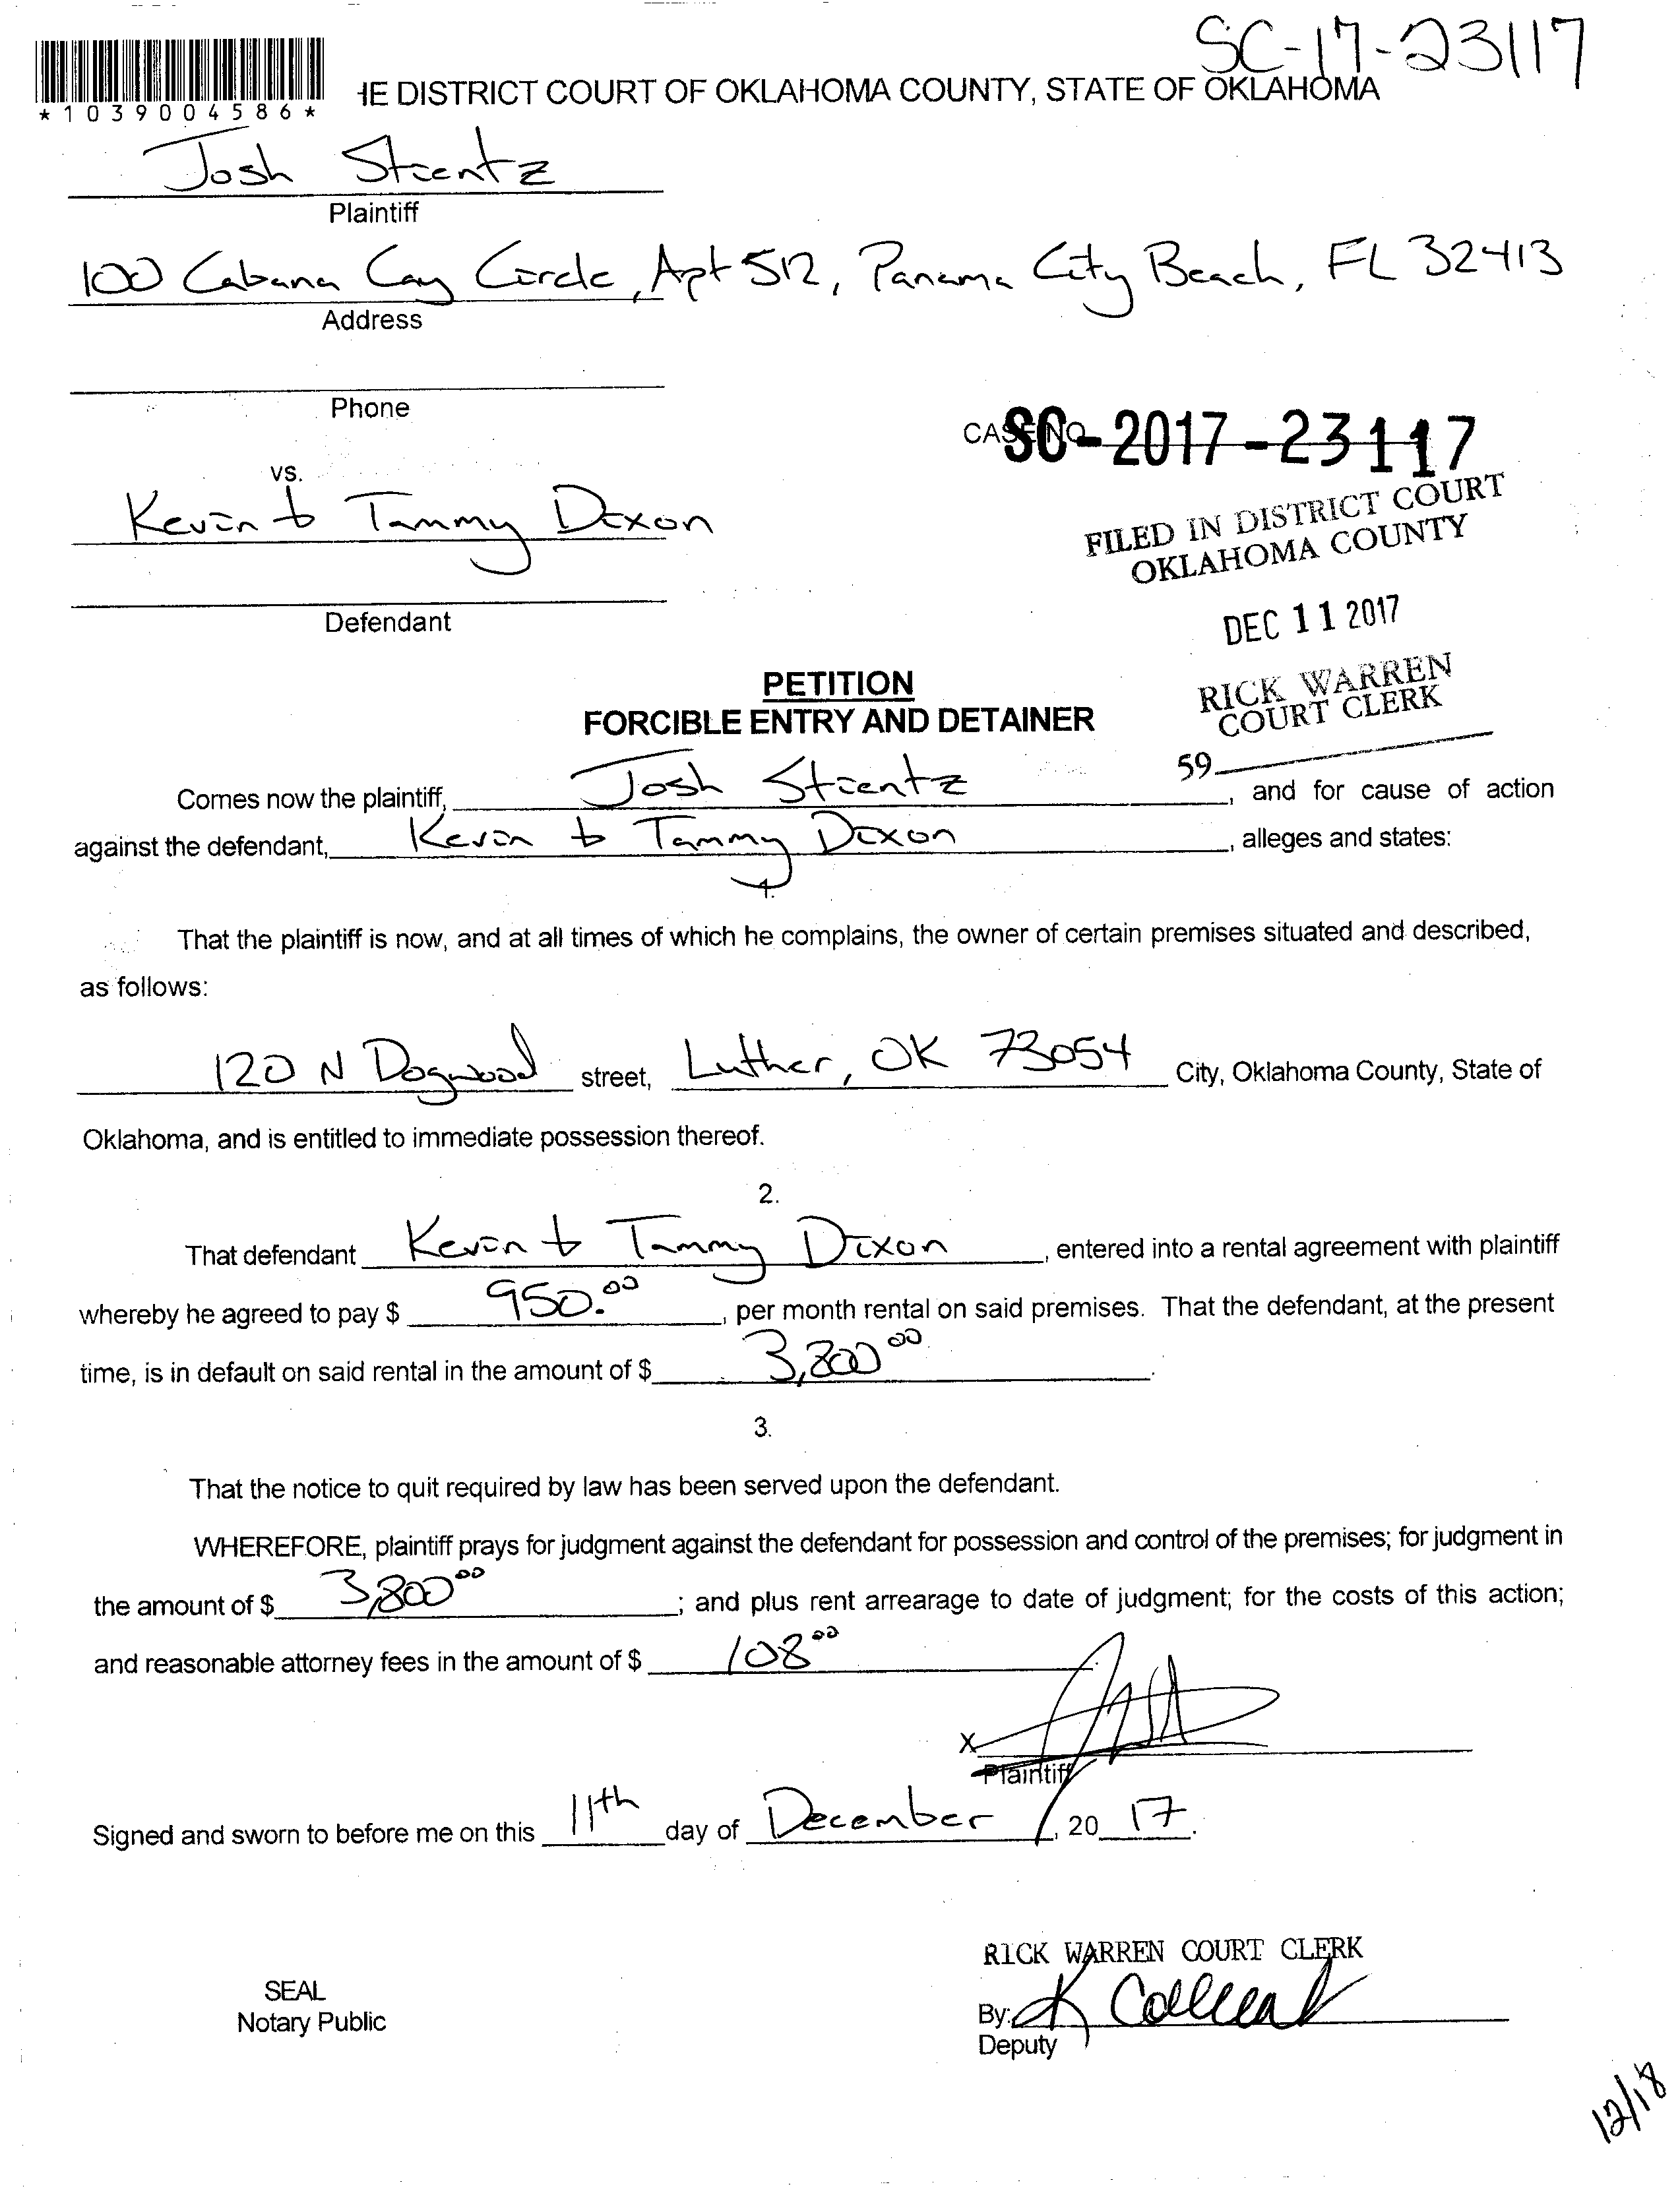 SC-17-23117
*1039004586*
HE DISTRICT COURT OF OKLAHOMA COUNTY, STATE OF OKLAHOMA
Josh Stientz
Plaintiff
100 Cabana Cay Circle, Apt 512, Panama City Beach, FL 32413
Address
Phone
CASE NO. SC-2017-23117
vs.
FILED IN DISTRICT COURT
OKLAHOMA COUNTY
Kevin & Tammy Dixon
Defendant
DEC 11 2017
RICK WARREN
COURT CLERK
59
PETITION
FORCIBLE ENTRY AND DETAINER
Comes now the plaintiff, Josh Stientz, and for cause of action
against the defendant, Kevin & Tammy Dixon, alleges and states:
1.
That the plaintiff is now, and at all times of which he complains, the owner of certain premises situated and described,
as follows:
120 N Dogwood street, Luther, OK 73054 City, Oklahoma County, State of
Oklahoma, and is entitled to immediate possession thereof.
2.
That defendant Kevin & Tammy Dixon, entered into a rental agreement with plaintiff
whereby he agreed to pay $ 950.00, per month rental on said premises. That the defendant, at the present
time, is in default on said rental in the amount of $ 3,800 00.
3.
That the notice to quit required by law has been served upon the defendant.
WHEREFORE, plaintiff prays for judgment against the defendant for possession and control of the premises; for judgment in
the amount of $ 3,800 00; and plus rent arrearage to date of judgment; for the costs of this action;
and reasonable attorney fees in the amount of $ 108 00
X
Plaintiff
Signed and sworn to before me on this 11th day of December, 20 17.
RICK WARREN COURT CLERK
SEAL
Notary Public
By: K
Deputy
12/18